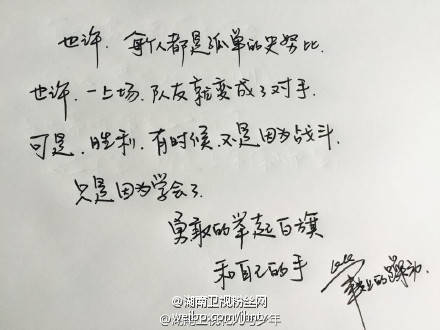 也许，每个人都是孤单的史努比．
也许，一上场，队友就变成了对手．
可是，胜利，有时候，不是因为战斗．
只是因为学会了
勇敢的举起白旗
和自己的手
@湖南卫视粉丝网
weibo.com/ihntv